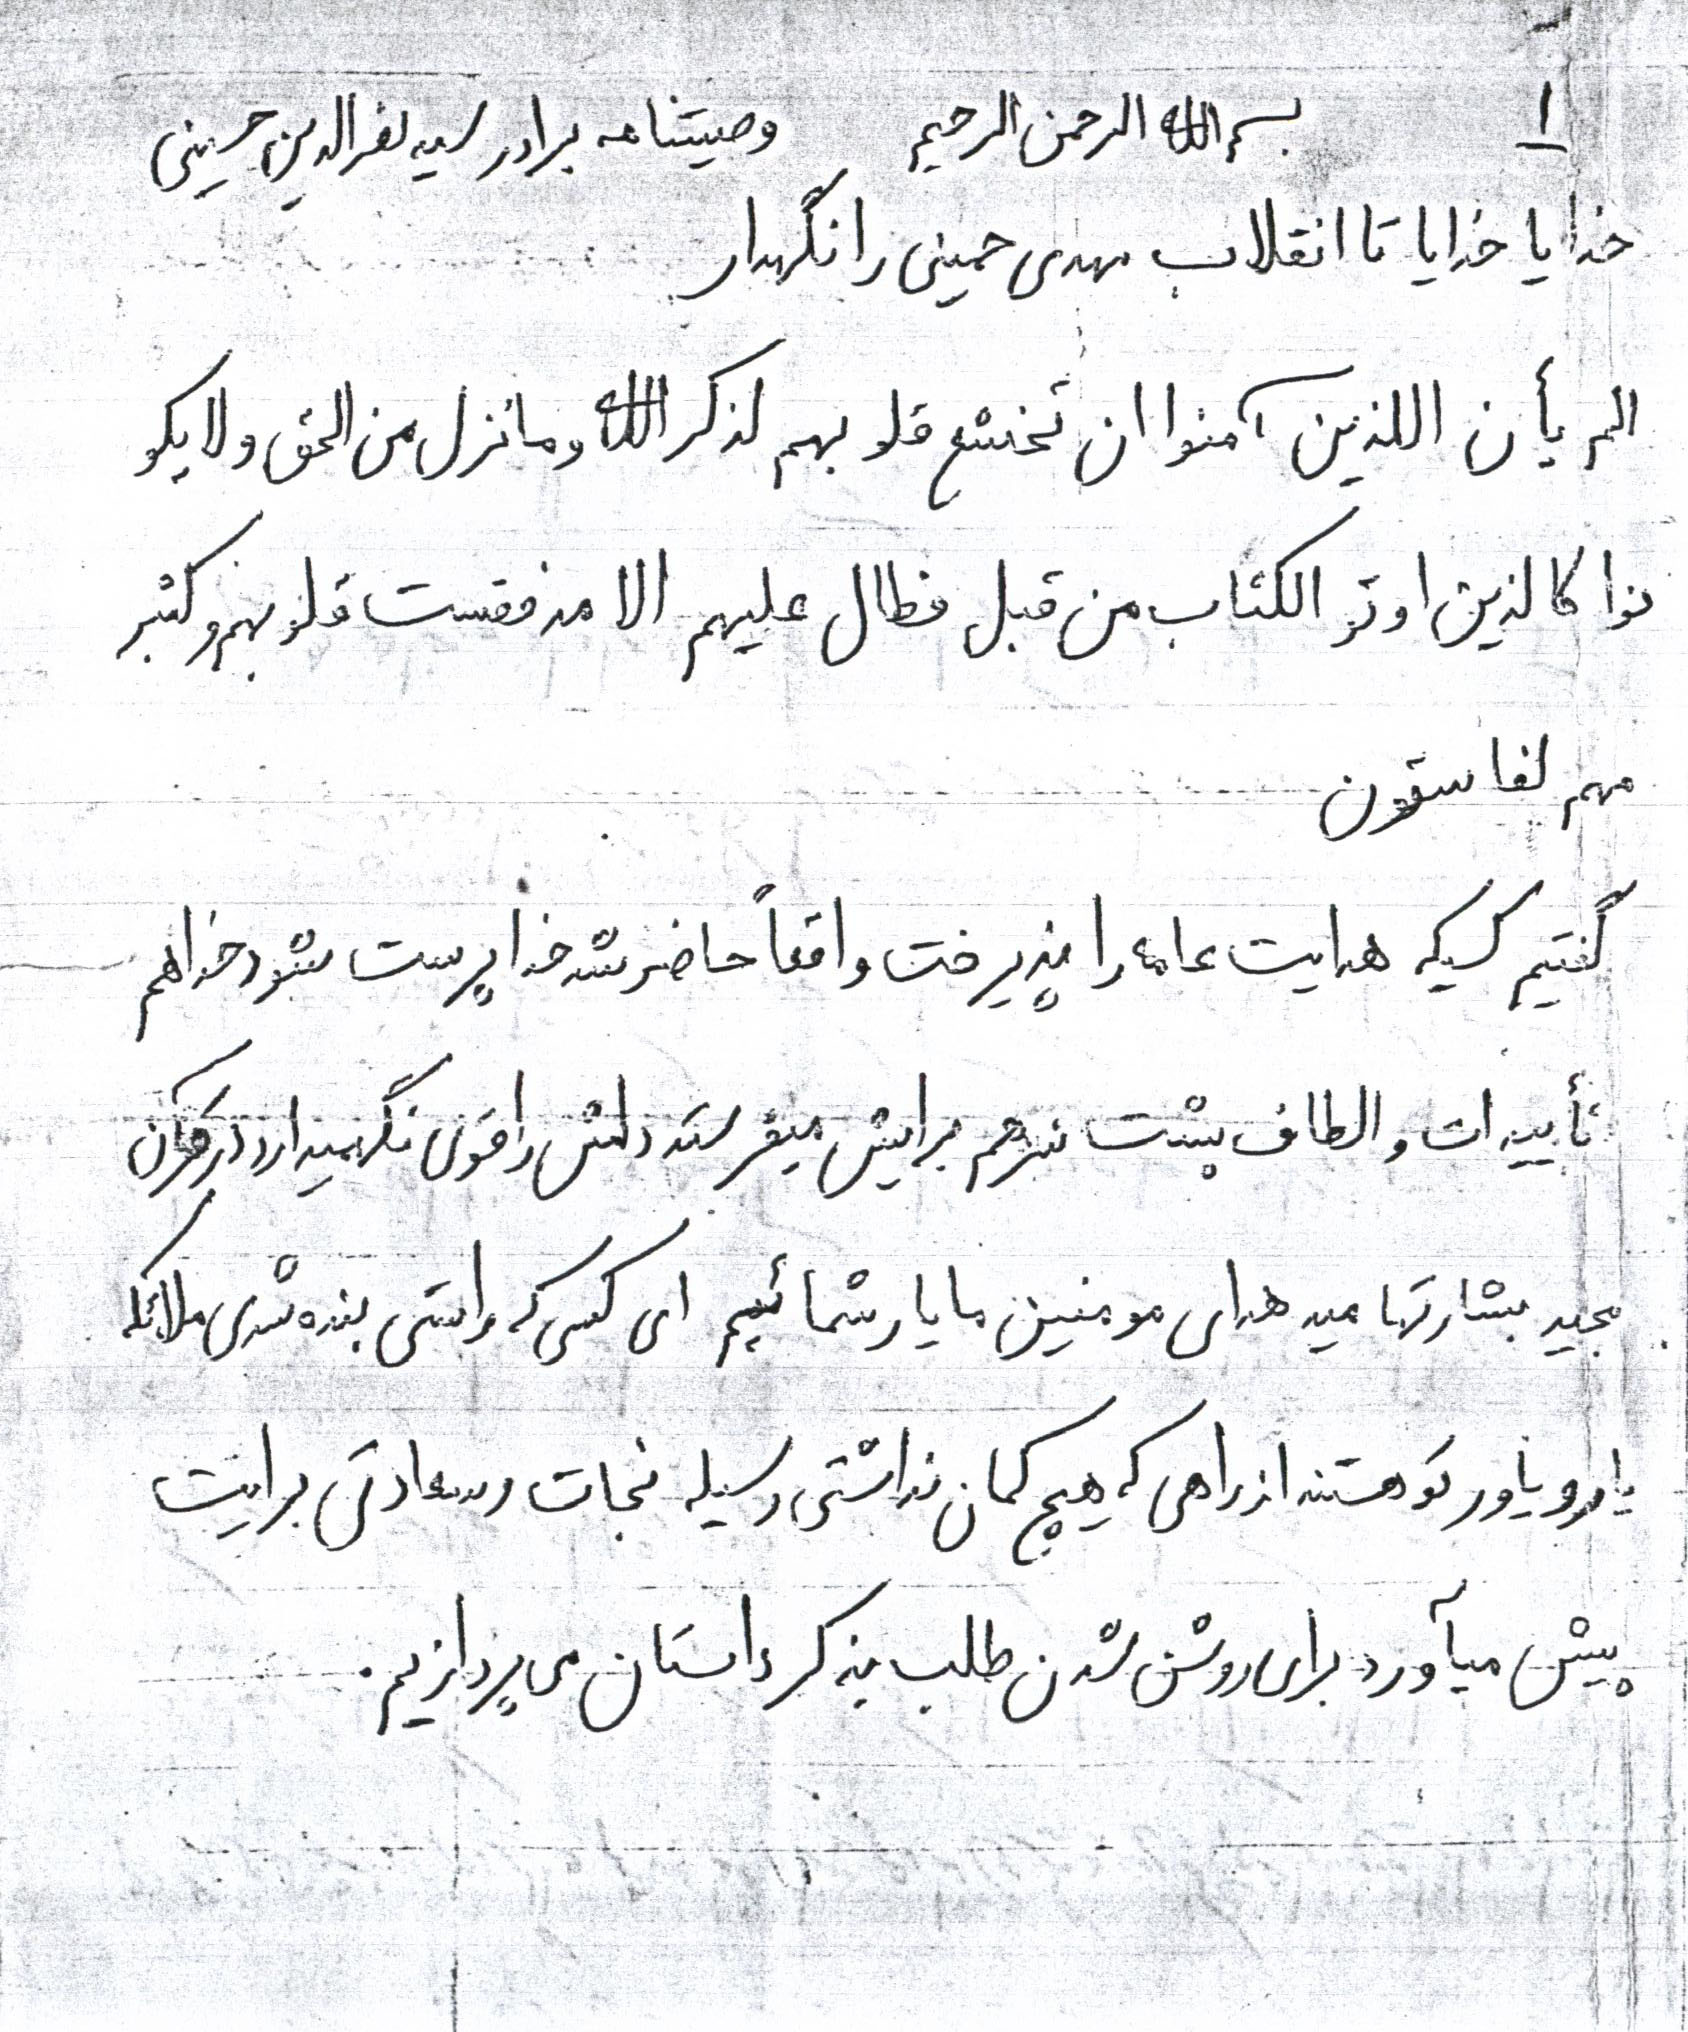 ۱
بسم الله الرحمن الرحیم وصیتنامه برادر سید نصرالدین حسینی
خدایا خدایا تا انقلاب مهدی خمینی را نگهدار
الم یأن اللذین آمنوا ان تخشع قلوبهم لذکر الله و ما نزل من الحق و لا یکو
نوا کالذین اوتو الکتاب من قبل فطال علیهم الا مد فقست قلوبهم و کثیر
مهم لفاسقون
گفتیم کسیکه هدایت عامه را پذیرفت واقعاً حاضر شد خدا پرست بشود خدا هم
تأییدات و الطاف پشت سرهم برایش میفرستد دلش را قوی نگهمیدارد در قرآن
مجید بشارتها میدهد ای مومنین ما یار شمائیم ای کسی که راستی بنده شدی ملائکه
یار و یاور تو هستند از راهی که هیچ گمان نداشتی وسیله نجات و سعادتی برایت
پیش میآورد برای روشن شدن طلب بذکر داستان می پردازیم.